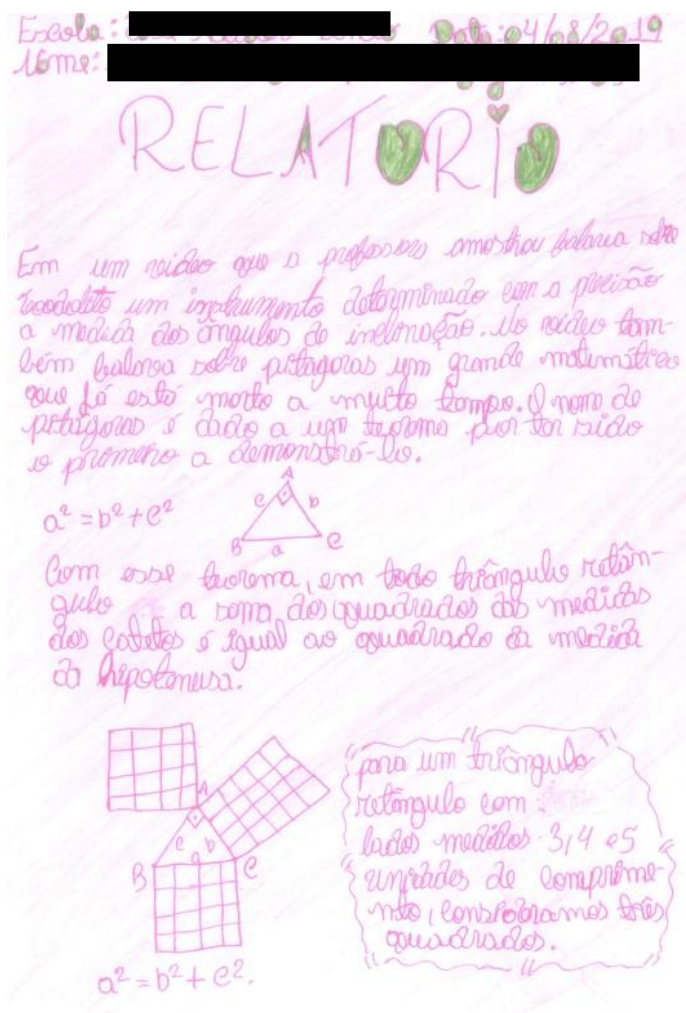 Escola: Data: 04/08/2019
Nome:
RELATÓRIO
Em um video que o professora amostrou falaria sobre
teodolito um instrumento determinado com a precisão
a medida dos ângulos de inclinação. No video tam-
bém falava sobre pitagoras um grande matemático
que já está morto a muito tempo. O nome de
pitágoras é dado a um teorema por ter sido
o promeiro a demonstrá-lo.
a² = b² + c²
A
c b
B a C
Com esse teorema, em todo triângulo retân-
gulo a soma dos quadrados das medidas
dos catetos é igual ao quadrado da medida
da hipotenusa.
A
c b
B a C
a² = b² + c².
para um triângulo
retângulo com :
lados medidos 3,4 e 5
unidades de comprime-
nto, consideramos três
quadrados.